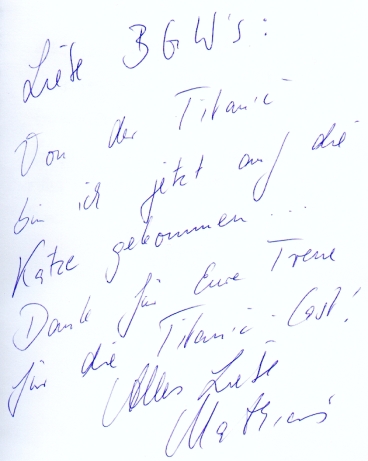 Liebe BGW's:
Von der Titanic
bin ich jetzt auf die
Katze gekommen...
Danke für Eure Treue
für die Titanic-Cast!
Alles Liebe
Mathias